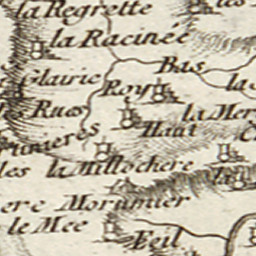 la Regrette
la Racinée
Glairie
Bas
Roy
la
Rues
la Mer
Haut
les la Millochere
ere Morumier
le Mee
Feil